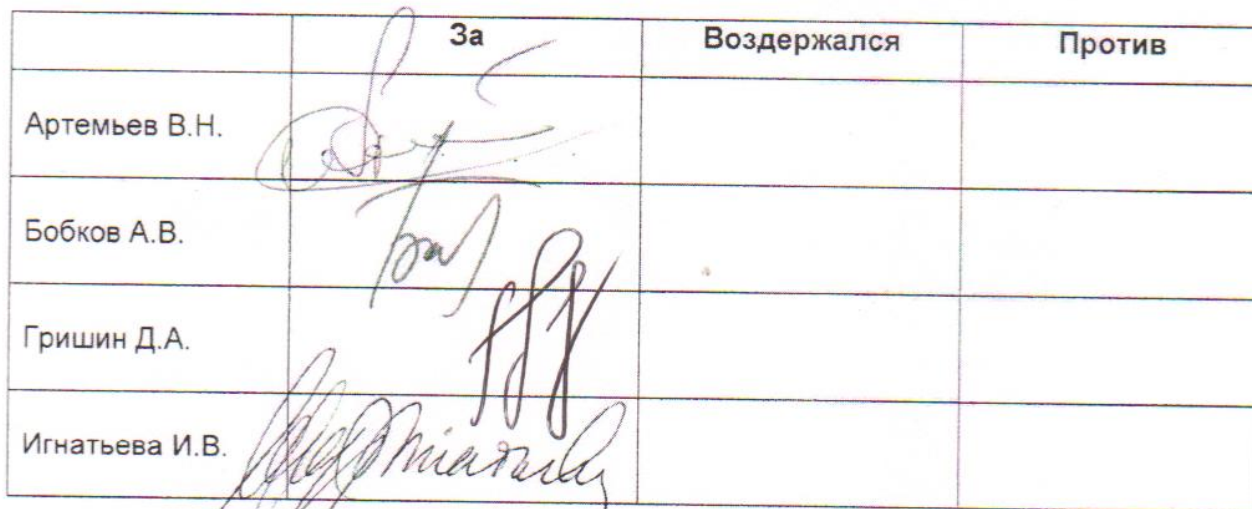 За Воздержался Против
Артемьев В.Н.
Бобков А.В.
Гришин Д.А.
Игнатьева И.В.